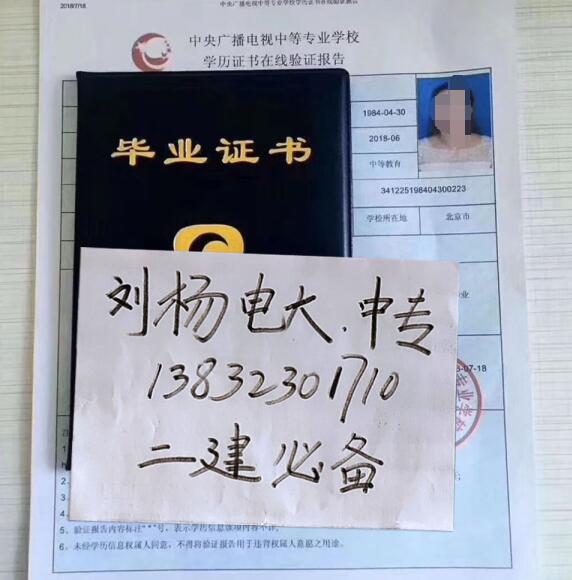 2018/7/18
中央广播电视中等专业学校学历证书在线验证报告
中央广播电视中等专业学校
学历证书在线验证报告
1984-04-30
2018-06
中等教育
341225198404300223
学校所在地 北京市
毕业证书
刘杨电大.中专
13832301710
二建必备
业
-07-18
专业学校
5、验证报告内容标注"*"号，表示学历信息该项内容不详。
6、未经学历信息权属人同意，不得将验证报告用于违背权属人意愿之用途。